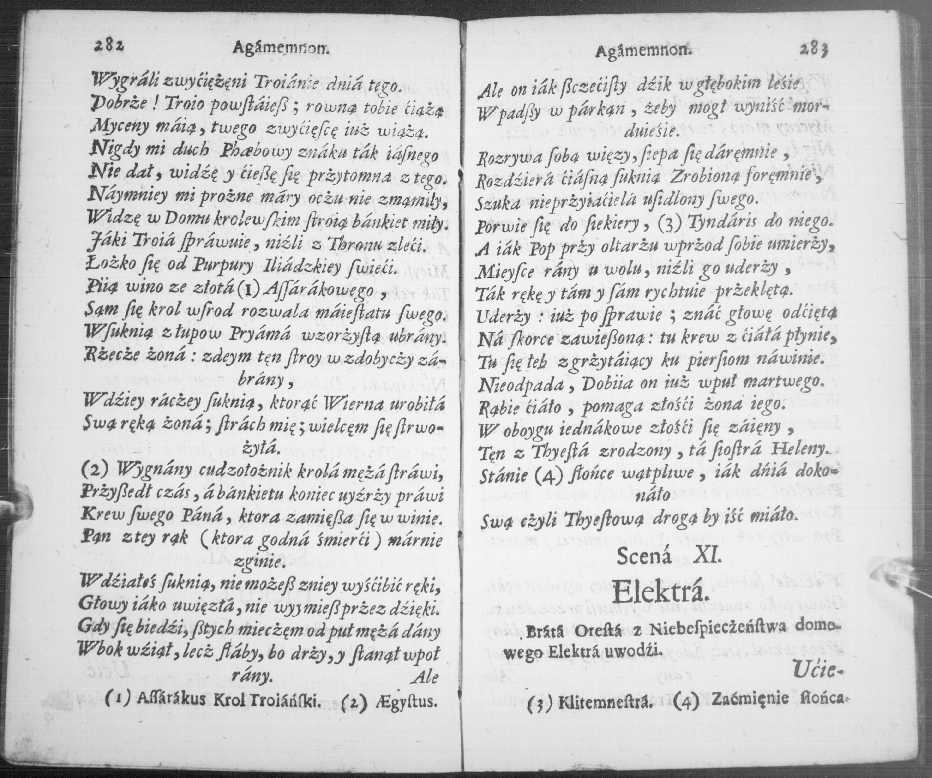 282 Agámemnon.
Wygráli zwyćiężęni Troiánie dniá tego.
Dobrże ! Troio powſtáieß ; rowną tobie ćiążą
Myceny máią, twego zwyćięſcę iuż wiążą.
Nigdy mi duch Phæbowy znáku ták iáſnego
Nie dał, widżę y ćießę ſię prżytomna z tego.
Náymniey mi prożne máry ocżu nie zmąmiły,
Widzę w Domu krolewſkim ſtroią bánkiet miły.
Jáki Troiá ſpráwuie, niźli z Thronu zleći.
Łożko ſię od Purpury Iliádzkiey ſwięći.
Piią wino ze złotá (1) Aſſarákowego ,
Sąm ſię krol wſrod rozwala máieſtatu ſwego.
Wſuknią z łupow Pryámá wzorżyſtą ubrány.
Rżecże żoná : zdeym tęn ſtroy w zdobycży zá-
brány ,
Wdźiey rácżey ſuknią, ktorąć Wierna urobiłá
Swą ręką żoná ; ſtrách mię ; wielcęm ſię ſtrwo-
żyłá.
(2) Wygnány cudzołożnik krolá mężá ſtráwi,
Prżyßedł czás, á bánkietu koniec uyźrży práwi
Krew ſwego Páná, ktora zamięßa ſię w winie.
Pąn z tey rąk (ktora godná śmierći) márnie
zginie.
Wdźiałeś ſuknią, nie możeß zniey wyśćibić ręki,
Głowy iáko uwięzłá, nie wyymieß przez dźięki.
Gdy ſię biedźi, ßtych mieczęm od puł mężá dány
Wbok wźiął, lecż ſłáby, bo drży, y ſtanął wpoł
rány. Ale
(1) Aſſárákus Krol Troiáńſki. (2) Ægyſtus.
Agámemnon. 283
Ale on iák ſzczećiſty dźik w głębokim leśie
W padſzy w párkąn, żeby mogł wyniść mor-
duieśie.
Rozrywa ſobą więzy, ſiepa ſię dáręmnie ,
Rozdźierá ćiáſną ſuknią Zrobioną foręmnie ,
Szuka nieprżyiaćielá uſidlony ſwego.
Porwie ſię do ſiekiery, (3) Tyndáris do niego.
A iák Pop prży oltarżu wprżod ſobie umierży,
Mieyſce rány u wolu, niźli go uderży ,
Ták rękę y tám y ſám rychtuie przeklętą.
Uderży : iuż po ſprawie ; znáć głowę odćiętą
Ná ſkorce zawießoną : tu krew z ćiáłá płynie,
Tu ſię łeb zgrżytáiący ku pierſiom náwinie.
Nieodpada, Dobiia on iuż wpuł martwego.
Rąbie ćiáło, pomaga złośći żona iego.
W oboygu iednákowe złośći ſię záięny ,
Tęn z Thyeſtá zrodzony, tá ſioſtrá Heleny.
Stánie (4) ſłońce wątpliwe, iák dńiá doko-
náło
Swą cżyli Thyeſtową drogą by iść miáło.
Scená XI.
Elektrá.
Brátá Oreſtá z Niebeſpieczeńſtwa domo-
wego Elektrá uwodźi.
Ućie-
(3) Klitemneſtrá. (4) Zaćmięnie ſłońca